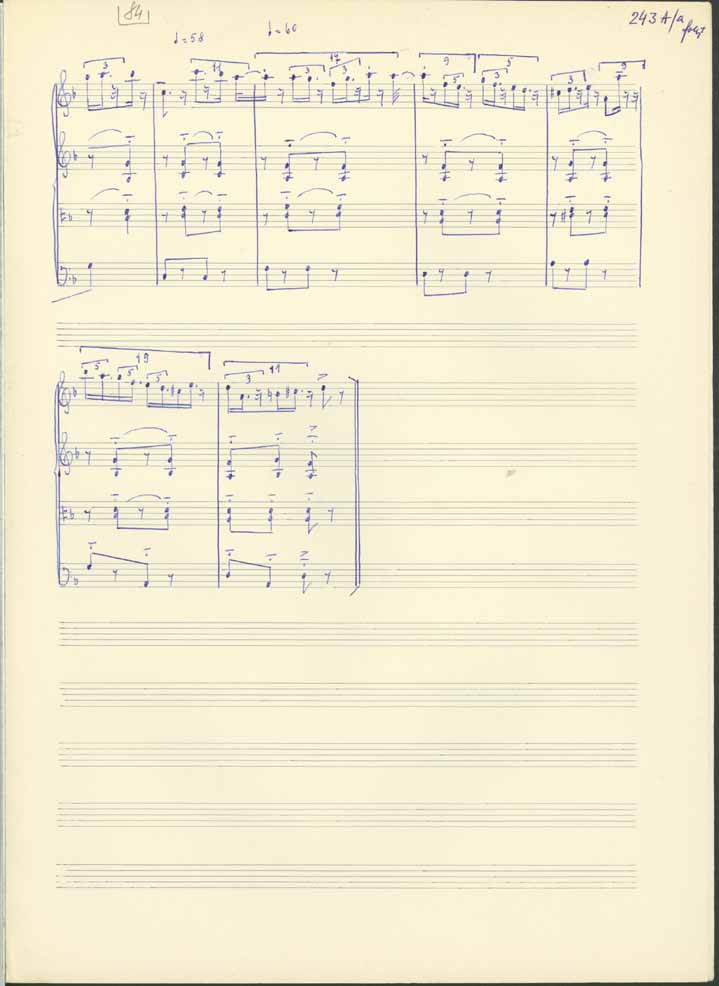 84
243 A/a
folyt
♩=58 ♩=60
3 11 3 17 3 9 5 5 3 3 9
5 5 19 5 3 11